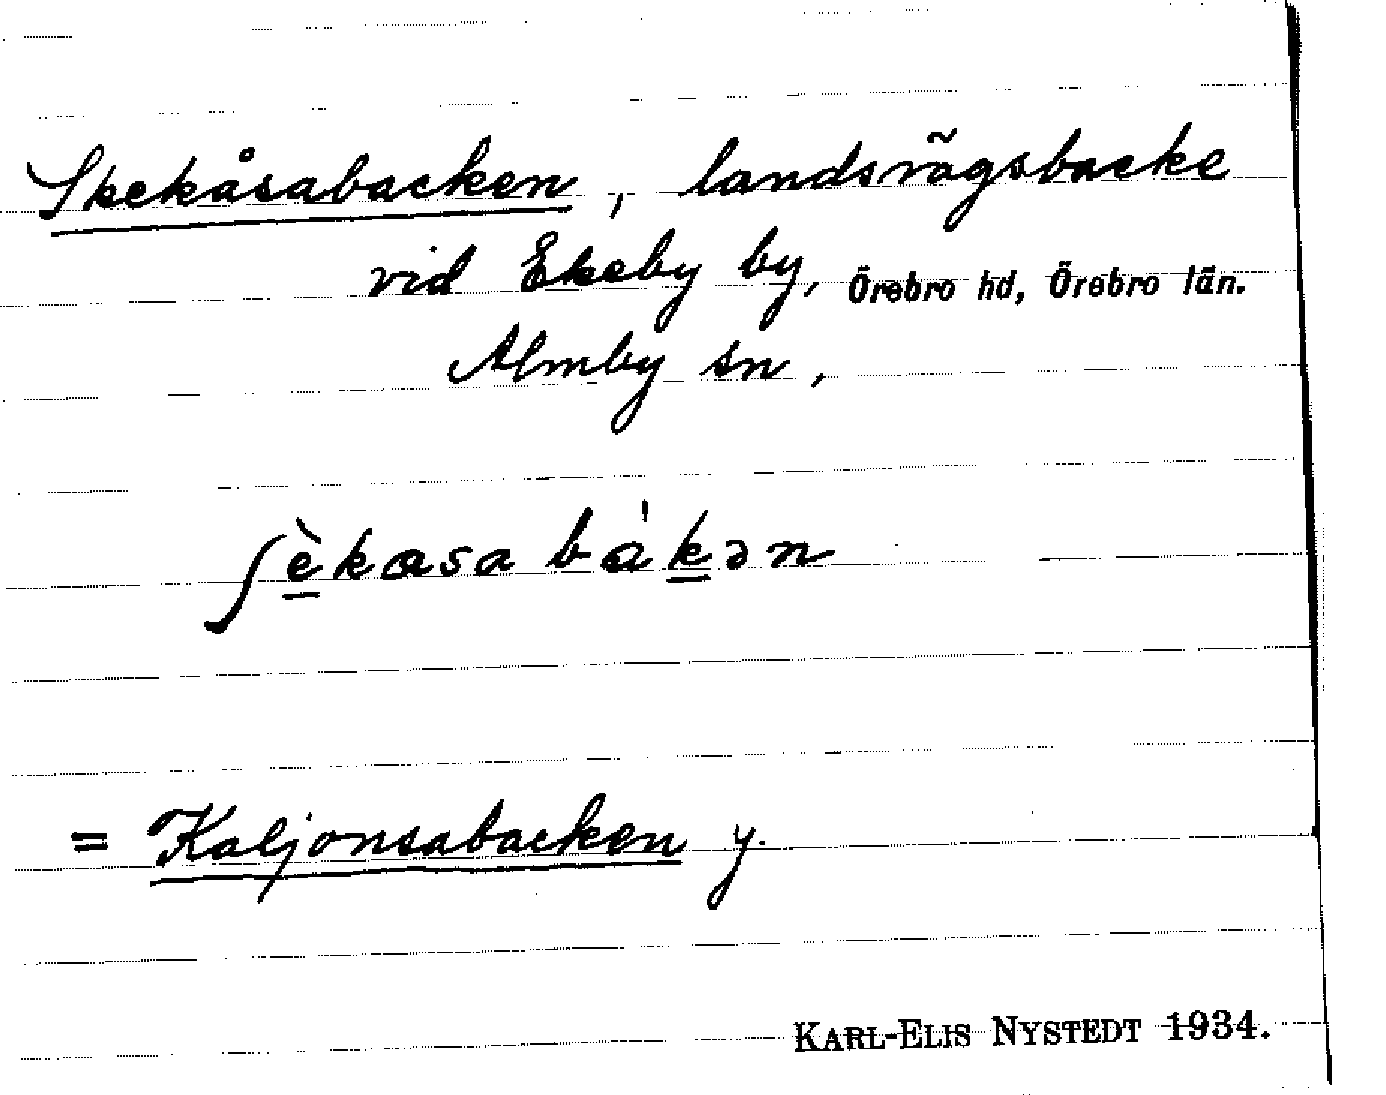 Skekåsabacken, landsvägsbacke
vid Ekeby by, Örebro hd, Örebro län.
Almby sn,
ʃèkasa bákən
= Kaljonsabacken y.
KARL-ELIS NYSTEDT 1934.